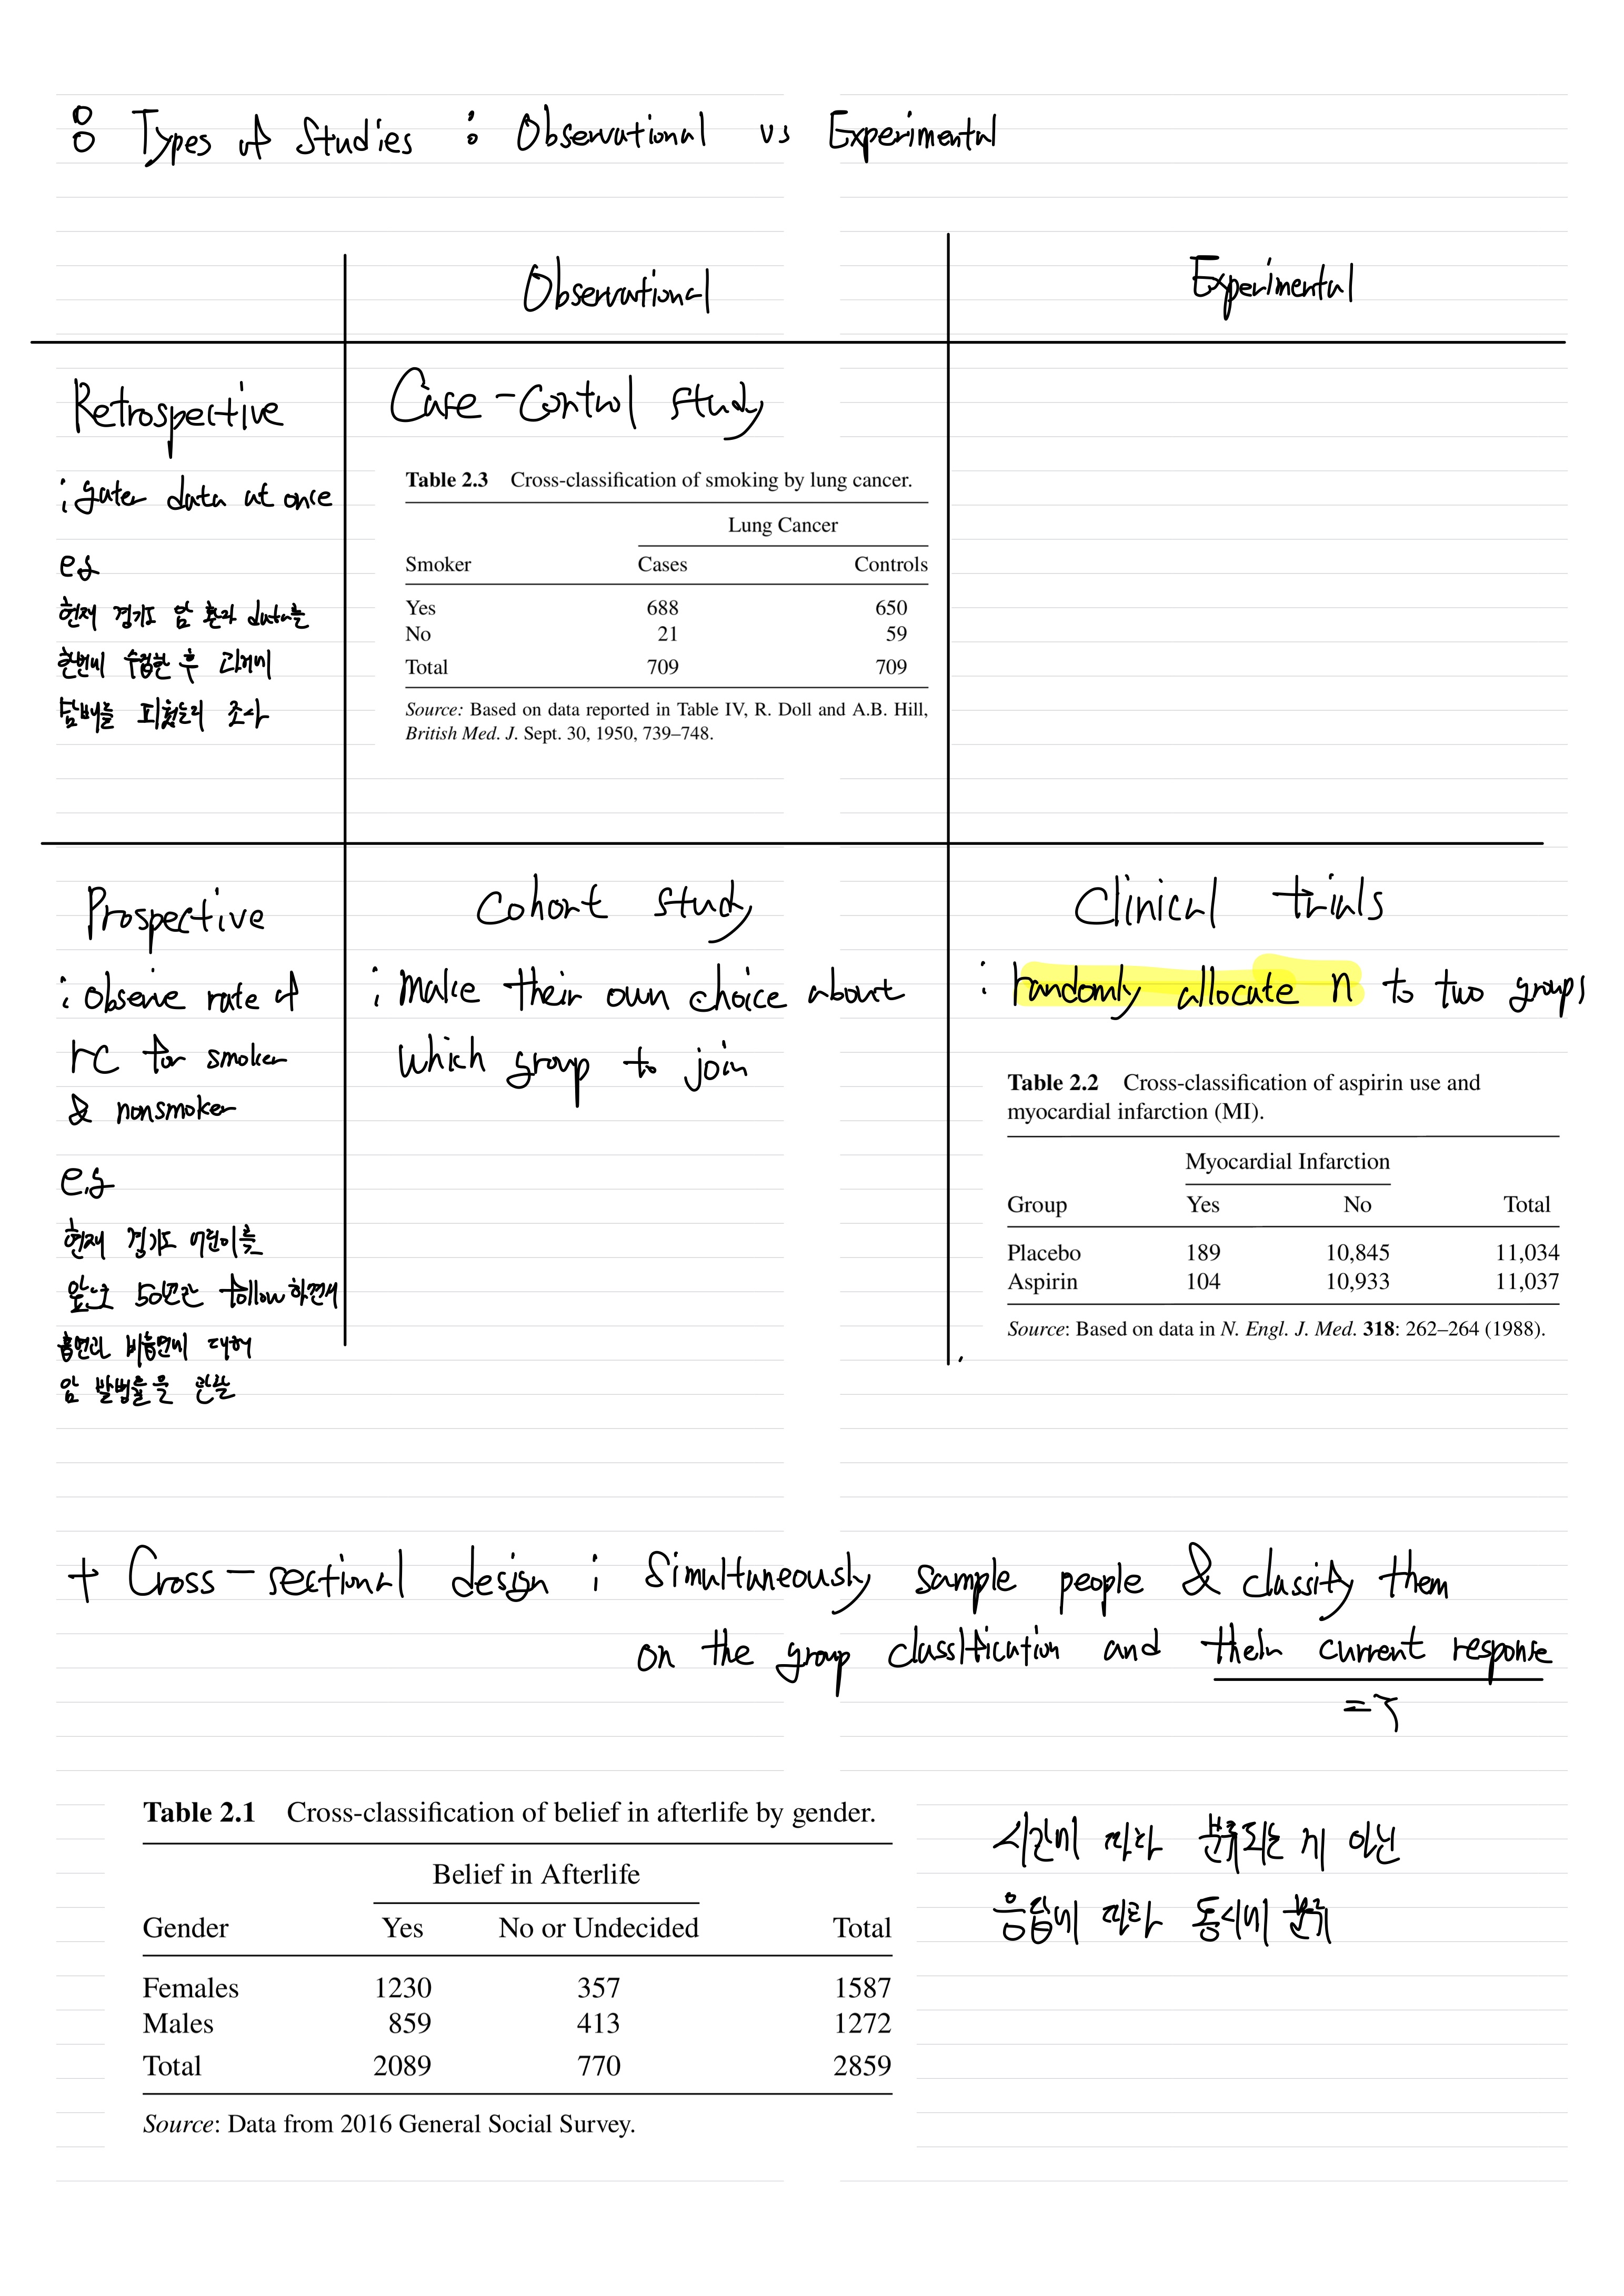 8 Types of Studies : Observational vs Experimental
Observational Experimental
Retrospective
; gater data at once
e.g
현재 경기도 암 환자 data를
한번에 수집한 후 과거에
담배를 피웠는지 조사
Case-Control study
Table 2.3 Cross-classification of smoking by lung cancer.
Lung Cancer
Smoker Cases Controls
Yes 688 650
No 21 59
Total 709 709
Source: Based on data reported in Table IV, R. Doll and A.B. Hill,
British Med. J. Sept. 30, 1950, 739–748.
Prospective
; observe rate of
for smoker
& nonsmoker
e.g
현재 경기도 어린이를
앞으로 50년간 follow하면서
흡연과 비흡연에 대해
암 발병률을 관찰
Cohort study
; Make their own choice about
which group to join
Clinical trials
; randomly allocate n to two groups
Table 2.2 Cross-classification of aspirin use and
myocardial infarction (MI).
Myocardial Infarction
Group Yes No Total
Placebo 189 10,845 11,034
Aspirin 104 10,933 11,037
Source: Based on data in N. Engl. J. Med. 318: 262–264 (1988).
+ Cross-sectional design ; Simultaneously sample people & classify them
on the group classification and their current response
Table 2.1 Cross-classification of belief in afterlife by gender.
Belief in Afterlife
Gender Yes No or Undecided Total
Females 1230 357 1587
Males 859 413 1272
Total 2089 770 2859
Source: Data from 2016 General Social Survey.
시간에 따라 분류되는 게 아닌
응답에 따라 동시에 분류